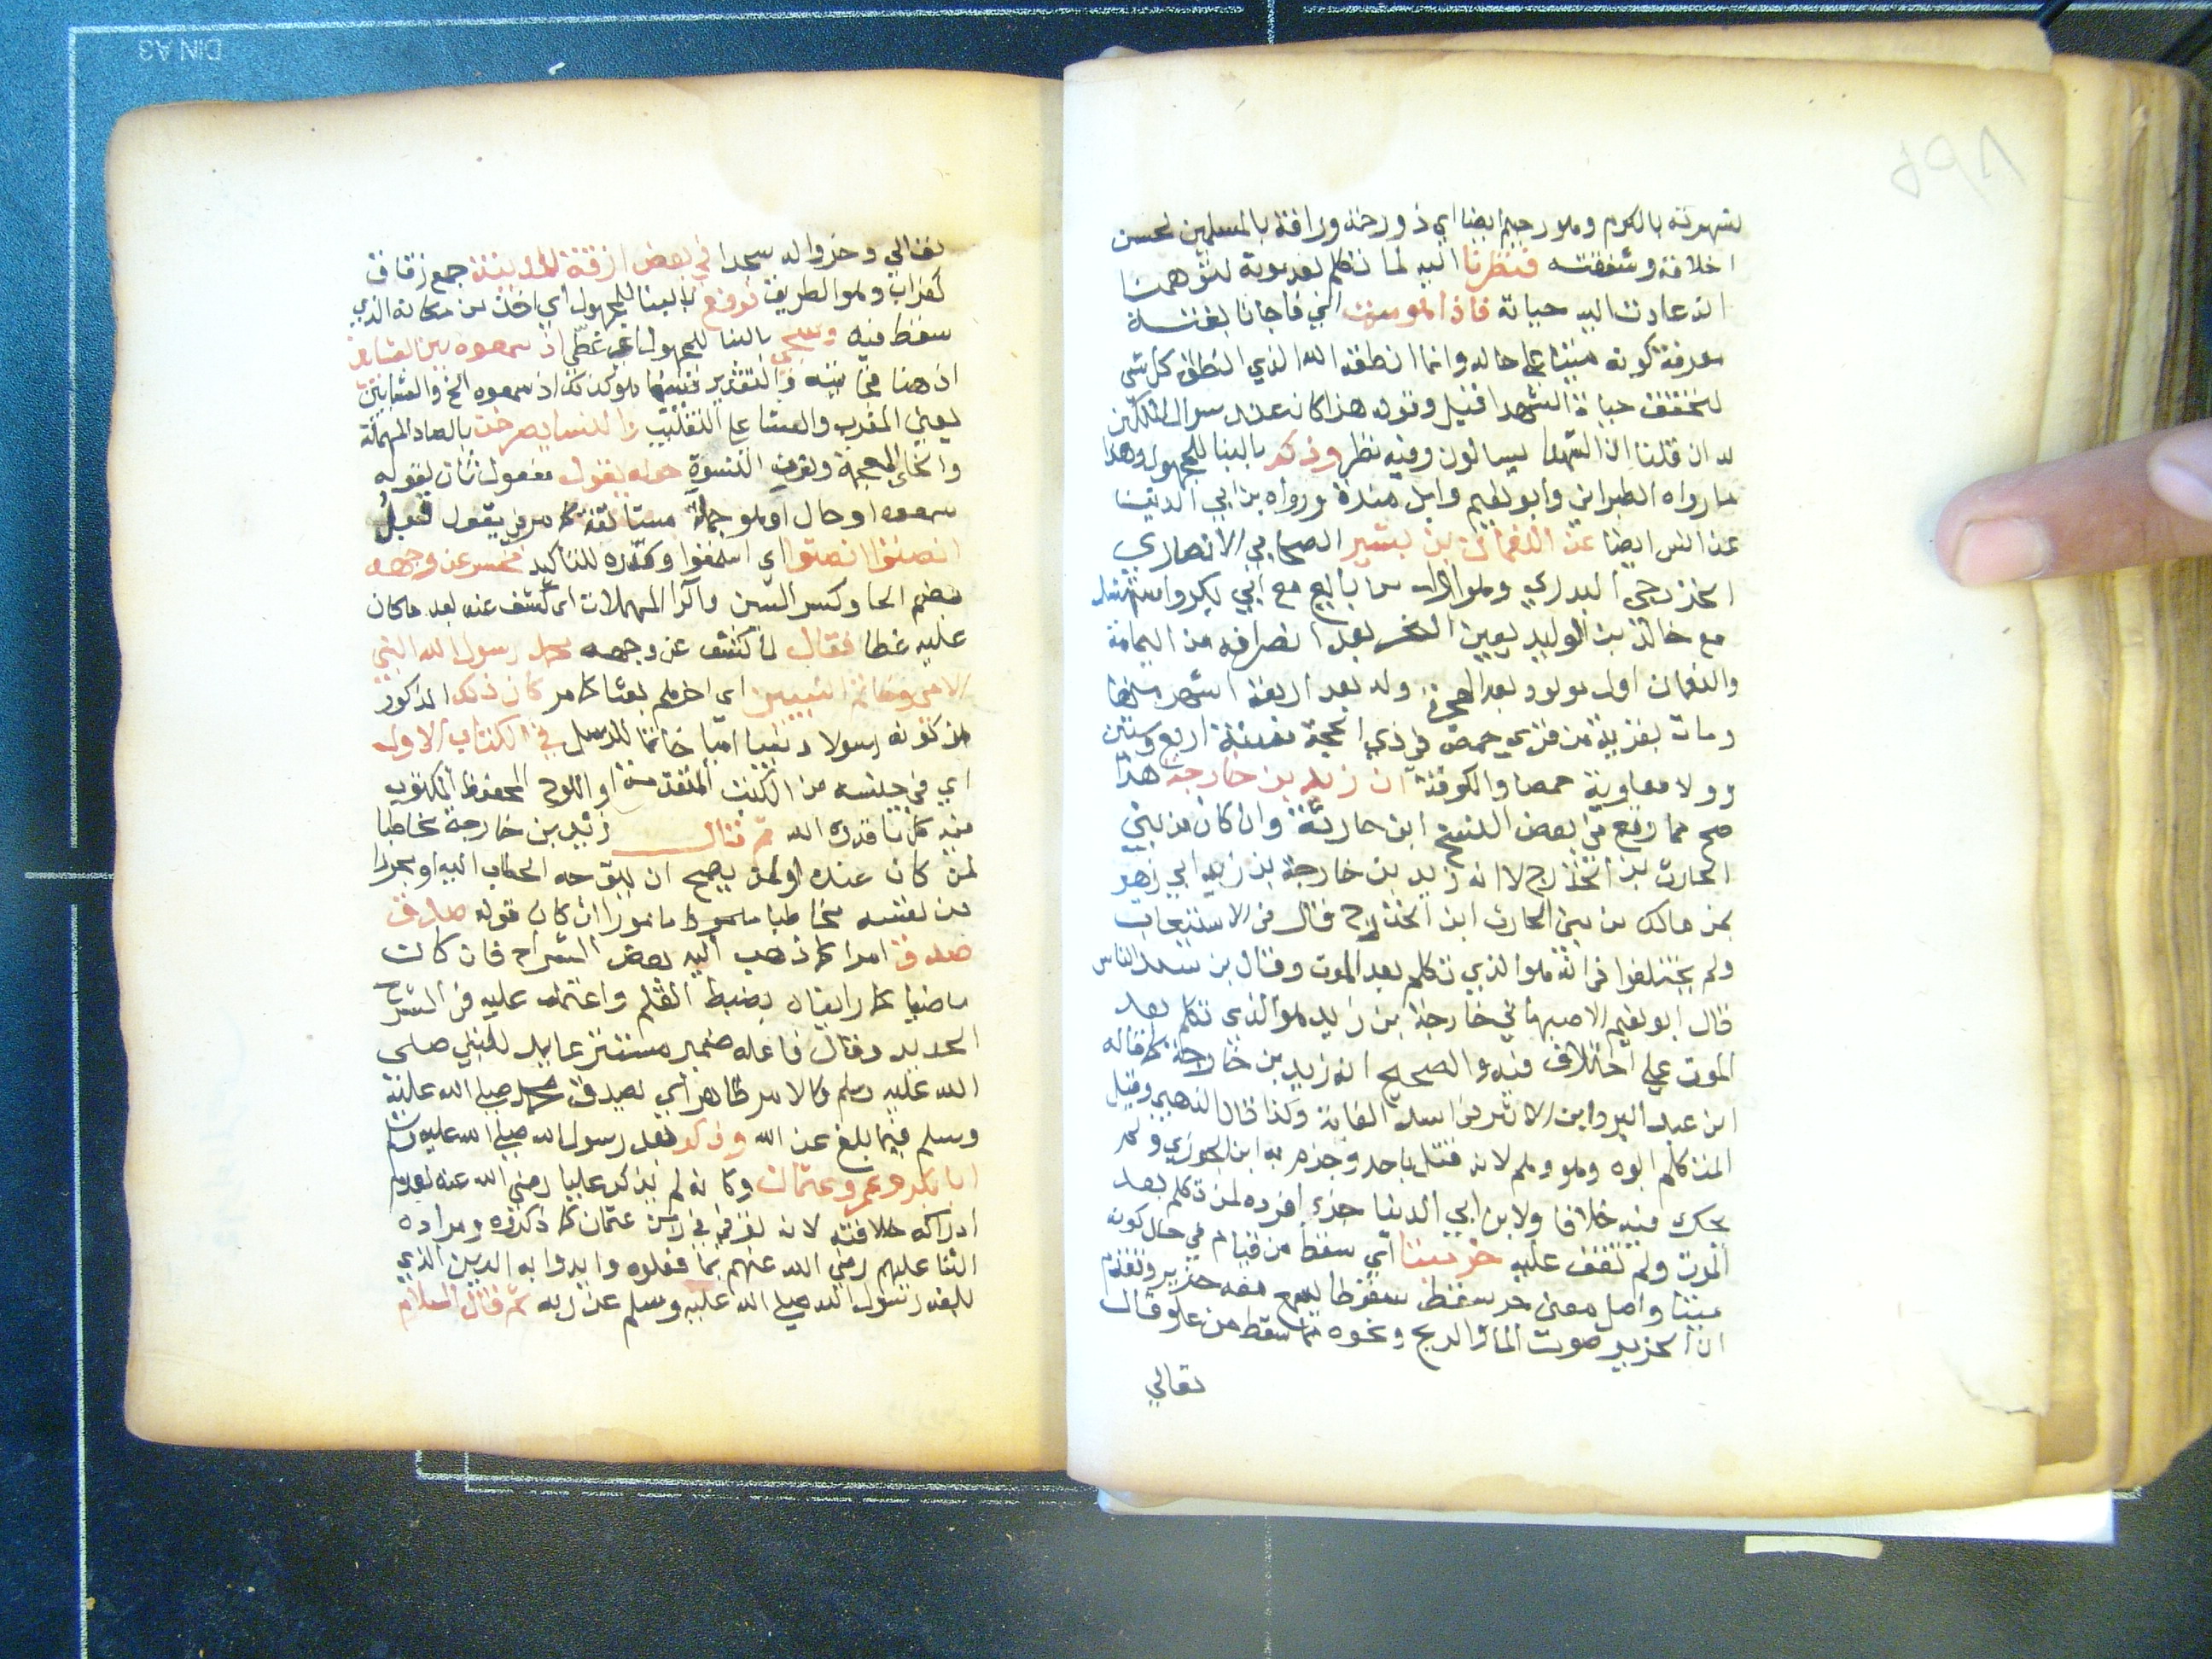 لشهرته بالكرم وهو رحيم ايضا اي ذو رحمة ورافة بالمسلمين لحسن
اخلاقه وشفقته فنظرنا اليه لما تكلم بعد موته لتوهمنا
انه عادت اليه حياته فاذا هو ميت اي فاجانا بغتة
معرفة كونه ميتا على حاله وانما انطقه الله الذي انطق كل شي
لتحقق حياة الشهدا قيل وقوله هذا كان عند سوال الملكين
له ان قلنا ان الشهدا يسالون وفيه نظر وذكر بالبنا للمجهول وهذا
ما رواه الطبراني وابو نعيم وابن مندة ورواه بن ابي الدنيا
عن انس ايضا عن النعمان بن بشير الصحابي الانصاري
الخزرجي البدري وهو اول من بايع مع ابي بكر واستشهد
مع خالد بن الوليد بعين التمر بعد انصرافه من اليمامة
والنعمان اول مولود بعد الهجرة ولد بعد اربعة اشهر منها
ومات بقرية من قري حمص في ذي الحجة سنة اربع وستين
وولاه معاوية حمصا والكوفة ان زيد بن خارجة هذا
صح مما وقع في بعض النسخ ابن حارثة وان كان من بني
الحارث بن الخزرج لانه زيد بن خارجة بن زيد ابي زهير
بن مالك من بني الحارث ابن الخزرج قال في الاستيعاب
ولم يختلفوا في انه هو الذي تكلم بعد الموت وقال بن سيد الناس
قال ابو نعيم الاصبهاني خارجة بن زيد هو الذي تكلم بعد
الموت علي اختلاف فيه والصحيح انه زيد بن خارجة كما قاله
ابن عبد البر وابن الاثير في اسد الغابة وكذا قال الذهبي وقيل
المتكلم ابوه وهو وهم لانه قتل باحد وجزم به ابن الجوزي ولم
يحك فيه خلافا ولابن ابي الدنيا جزء افرده لمن تكلم بعد
الموت ولم نقف عليه خر ميتا اي سقط من قيام في حال كونه
ميتا واصل معني خر سقط سقوطا يسمع معه خرير وتقدم
ان الخرير صوت الما والريح ونحوه مما سقط من علو وقال
تعالي
تعالي وخروا له سجدا في بعض ازقة المدينة جمع زقاق
كغراب وهو الطريق فرفع بالبنا للمجهول اي اخذ من مكانه الذي
سقط فيه وسجي بالبنا للمجهول اي غطي اذ سمعوه بين العشاين
اذ هنا فجائية والتقدير فبينما هو كذلك اذ سمعوه الخ والعشاين
يعني المغرب والعشا علي التغليب والنسا يصرخن بالصاد المهملة
والخا المعجمة ونون النسوة حوله يقول مفعول ثان لقوله
سمعوه او حال او هو جملة مستانفة كما مر في يقول قبل
انصتوا انصتوا اي اسكتوا وكرره للتاكيد فحسر عن وجهه
بضم الحا وكسر السين والرا المهملات اي كشف عنه بعد ما كان
عليه غطا فقال لما كشف عن وجهه محمد رسول الله النبي
الامي وخاتم النبيين اي اخرهم بعثا كما مر كان ذلك المذكور
من كونه رسولا ونبيا اميا خاتما للرسل في الكتاب الاول
اي في جنسه من الكتب المتقدمة او اللوح المحفوظ المكتوب
فيه كل ما قدره الله ثم قال زيد بن خارجة مخاطبا
لمن كان عنده او لمن يصح ان يتوجه الخطاب اليه او مجردا
من نفسه مخاطبا مامورا ان كان قوله صدق
صدق امرا كما ذهب اليه بعض الشراح فان كانت
ماضيا كما رايناه بضبط القلم واعتمد عليه في الشرح
الجديد وقال فاعله ضمير مستتر عايد للنبي صلي
الله عليه وسلم فالامر ظاهر اي لصدق محمد صلي الله عليه
وسلم فيما بلغ عن الله وذكر بعد رسول الله صلي الله عليه وسلم
ابا بكر وعمر وعثمان وكانه لم يذكر عليا رضي الله عنه لعدم
ادراكه خلافته لانه توفي في زمن عثمان كما ذكروه ومراده
الثنا عليهم رضي الله عنهم بما فعلوه وايدوا به الدين الذي
بلغه رسول الله صلي الله عليه وسلم عن ربه ثم قال السلام
DIN A3